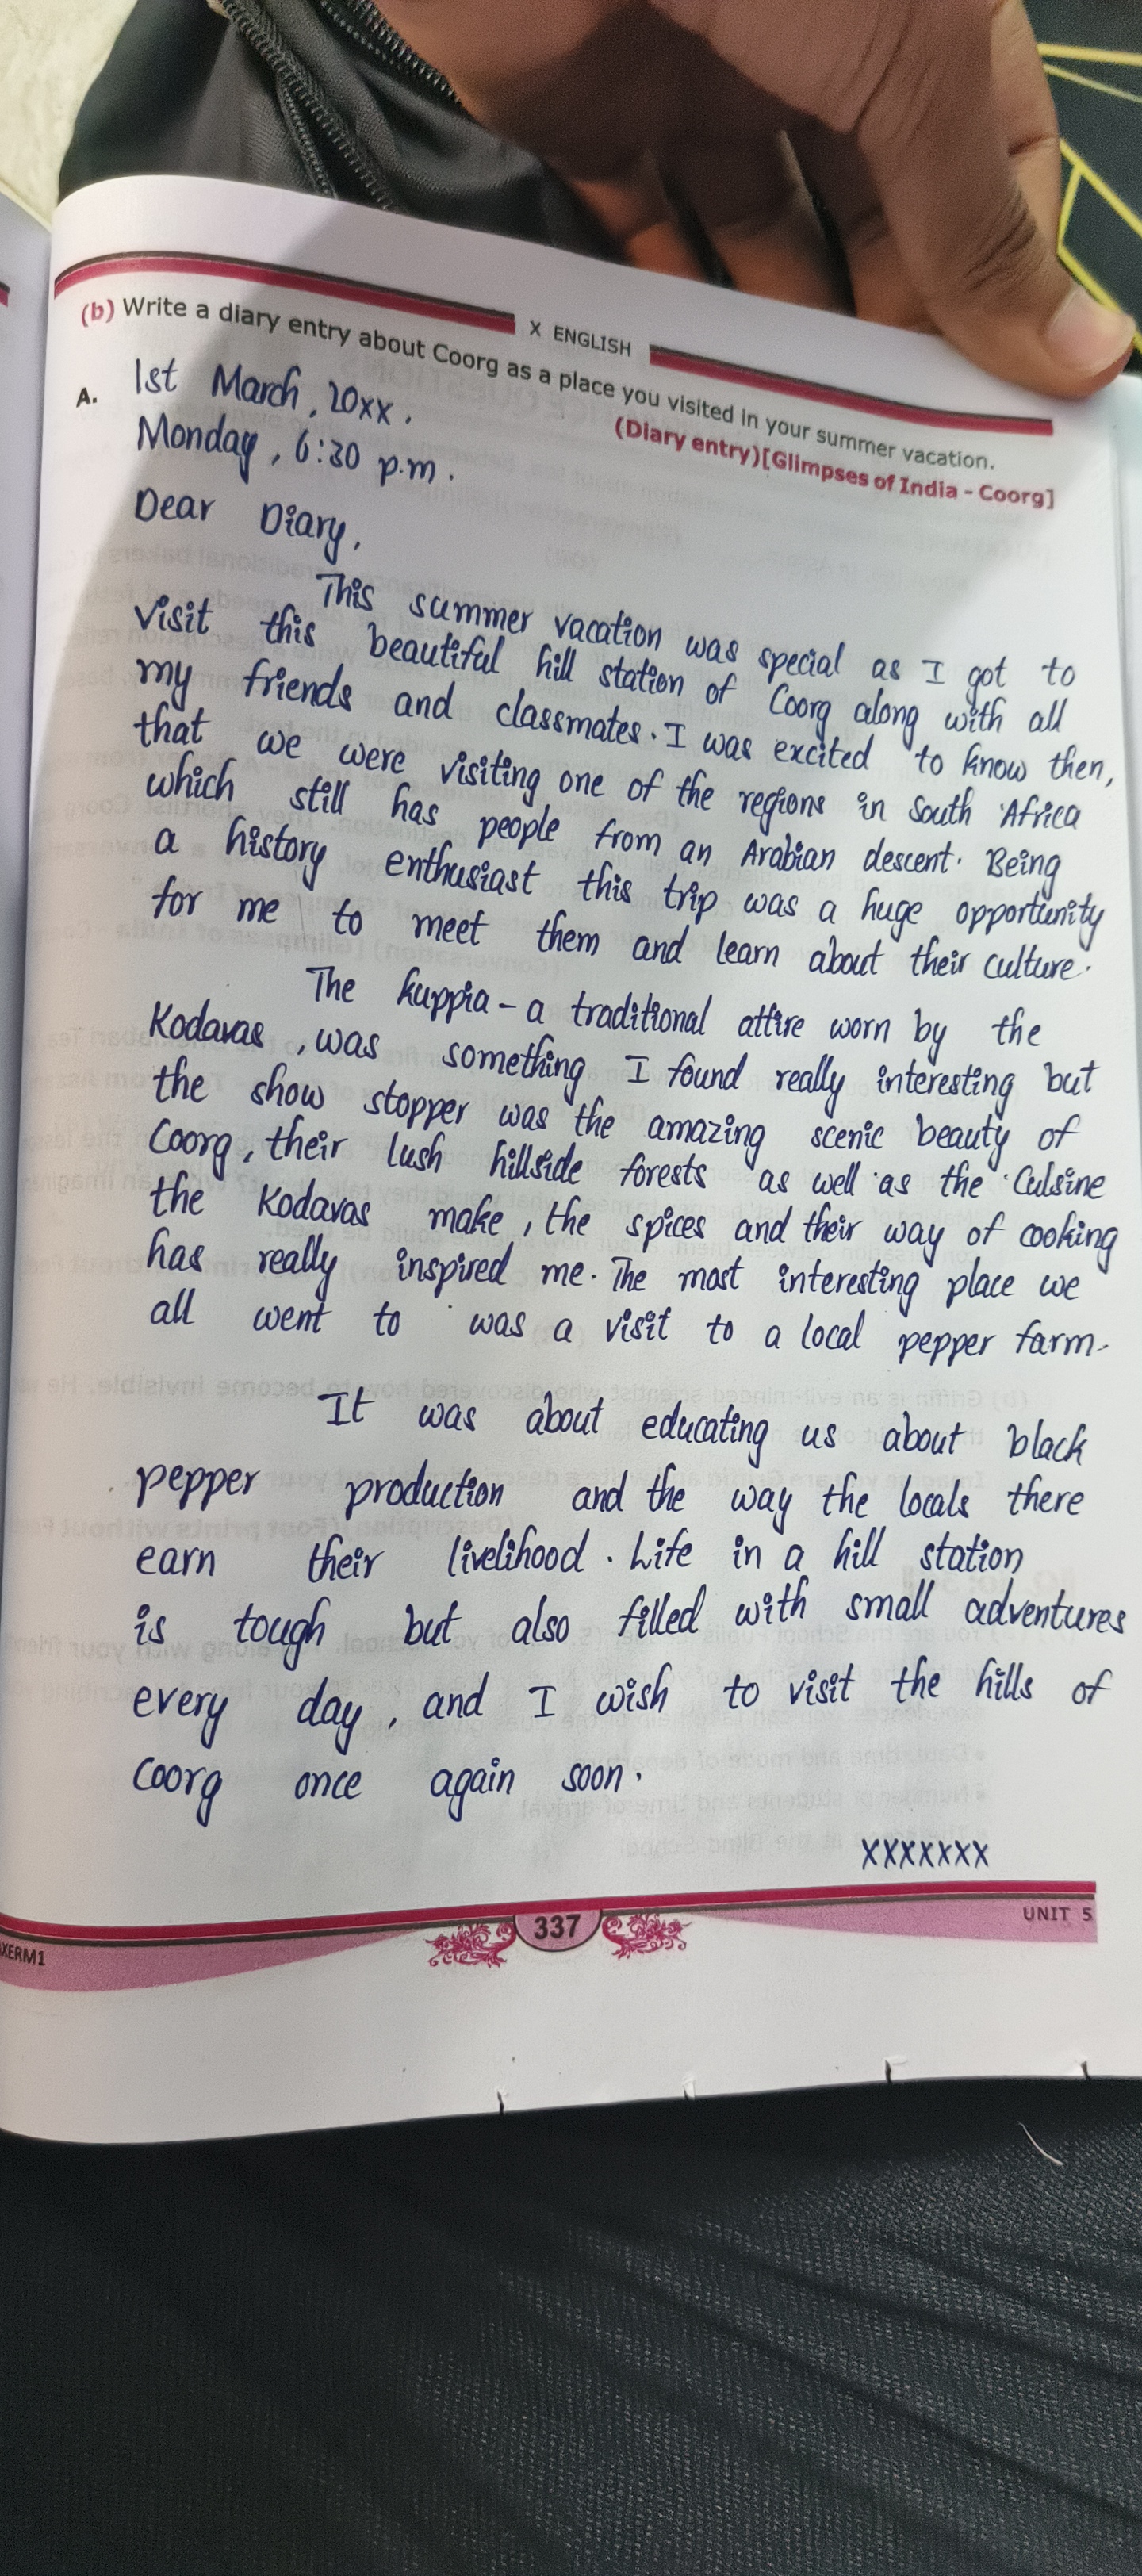 X ENGLISH
(b) Write a diary entry about Coorg as a place you visited in your summer vacation.
(Diary entry)[Glimpses of India - Coorg]
A. 1st March, 20xx.
Monday, 6:30 p.m.
Dear Diary,
This summer vacation was special as I got to
visit this beautiful hill station of Coorg along with all
my friends and classmates. I was excited to know then,
that we were visiting one of the regions in South Africa
which still has people from an Arabian descent. Being
a history enthusiast this trip was a huge opportunity
for me to meet them and learn about their culture.
The kuppia - a traditional attire worn by the
Kodavas, was something I found really interesting but
the show stopper was the amazing scenic beauty of
Coorg, their lush hillside forests as well as the Cuisine
the Kodavas make, the spices and their way of cooking
has really inspired me. The most interesting place we
all went to was a visit to a local pepper farm.
It was about educating us about black
pepper production and the way the locals there
earn their livelihood. Life in a hill station
is tough but also filled with small adventures
every day, and I wish to visit the hills of
Coorg once again soon.
XXXXXXX
XERM1
337
UNIT 5